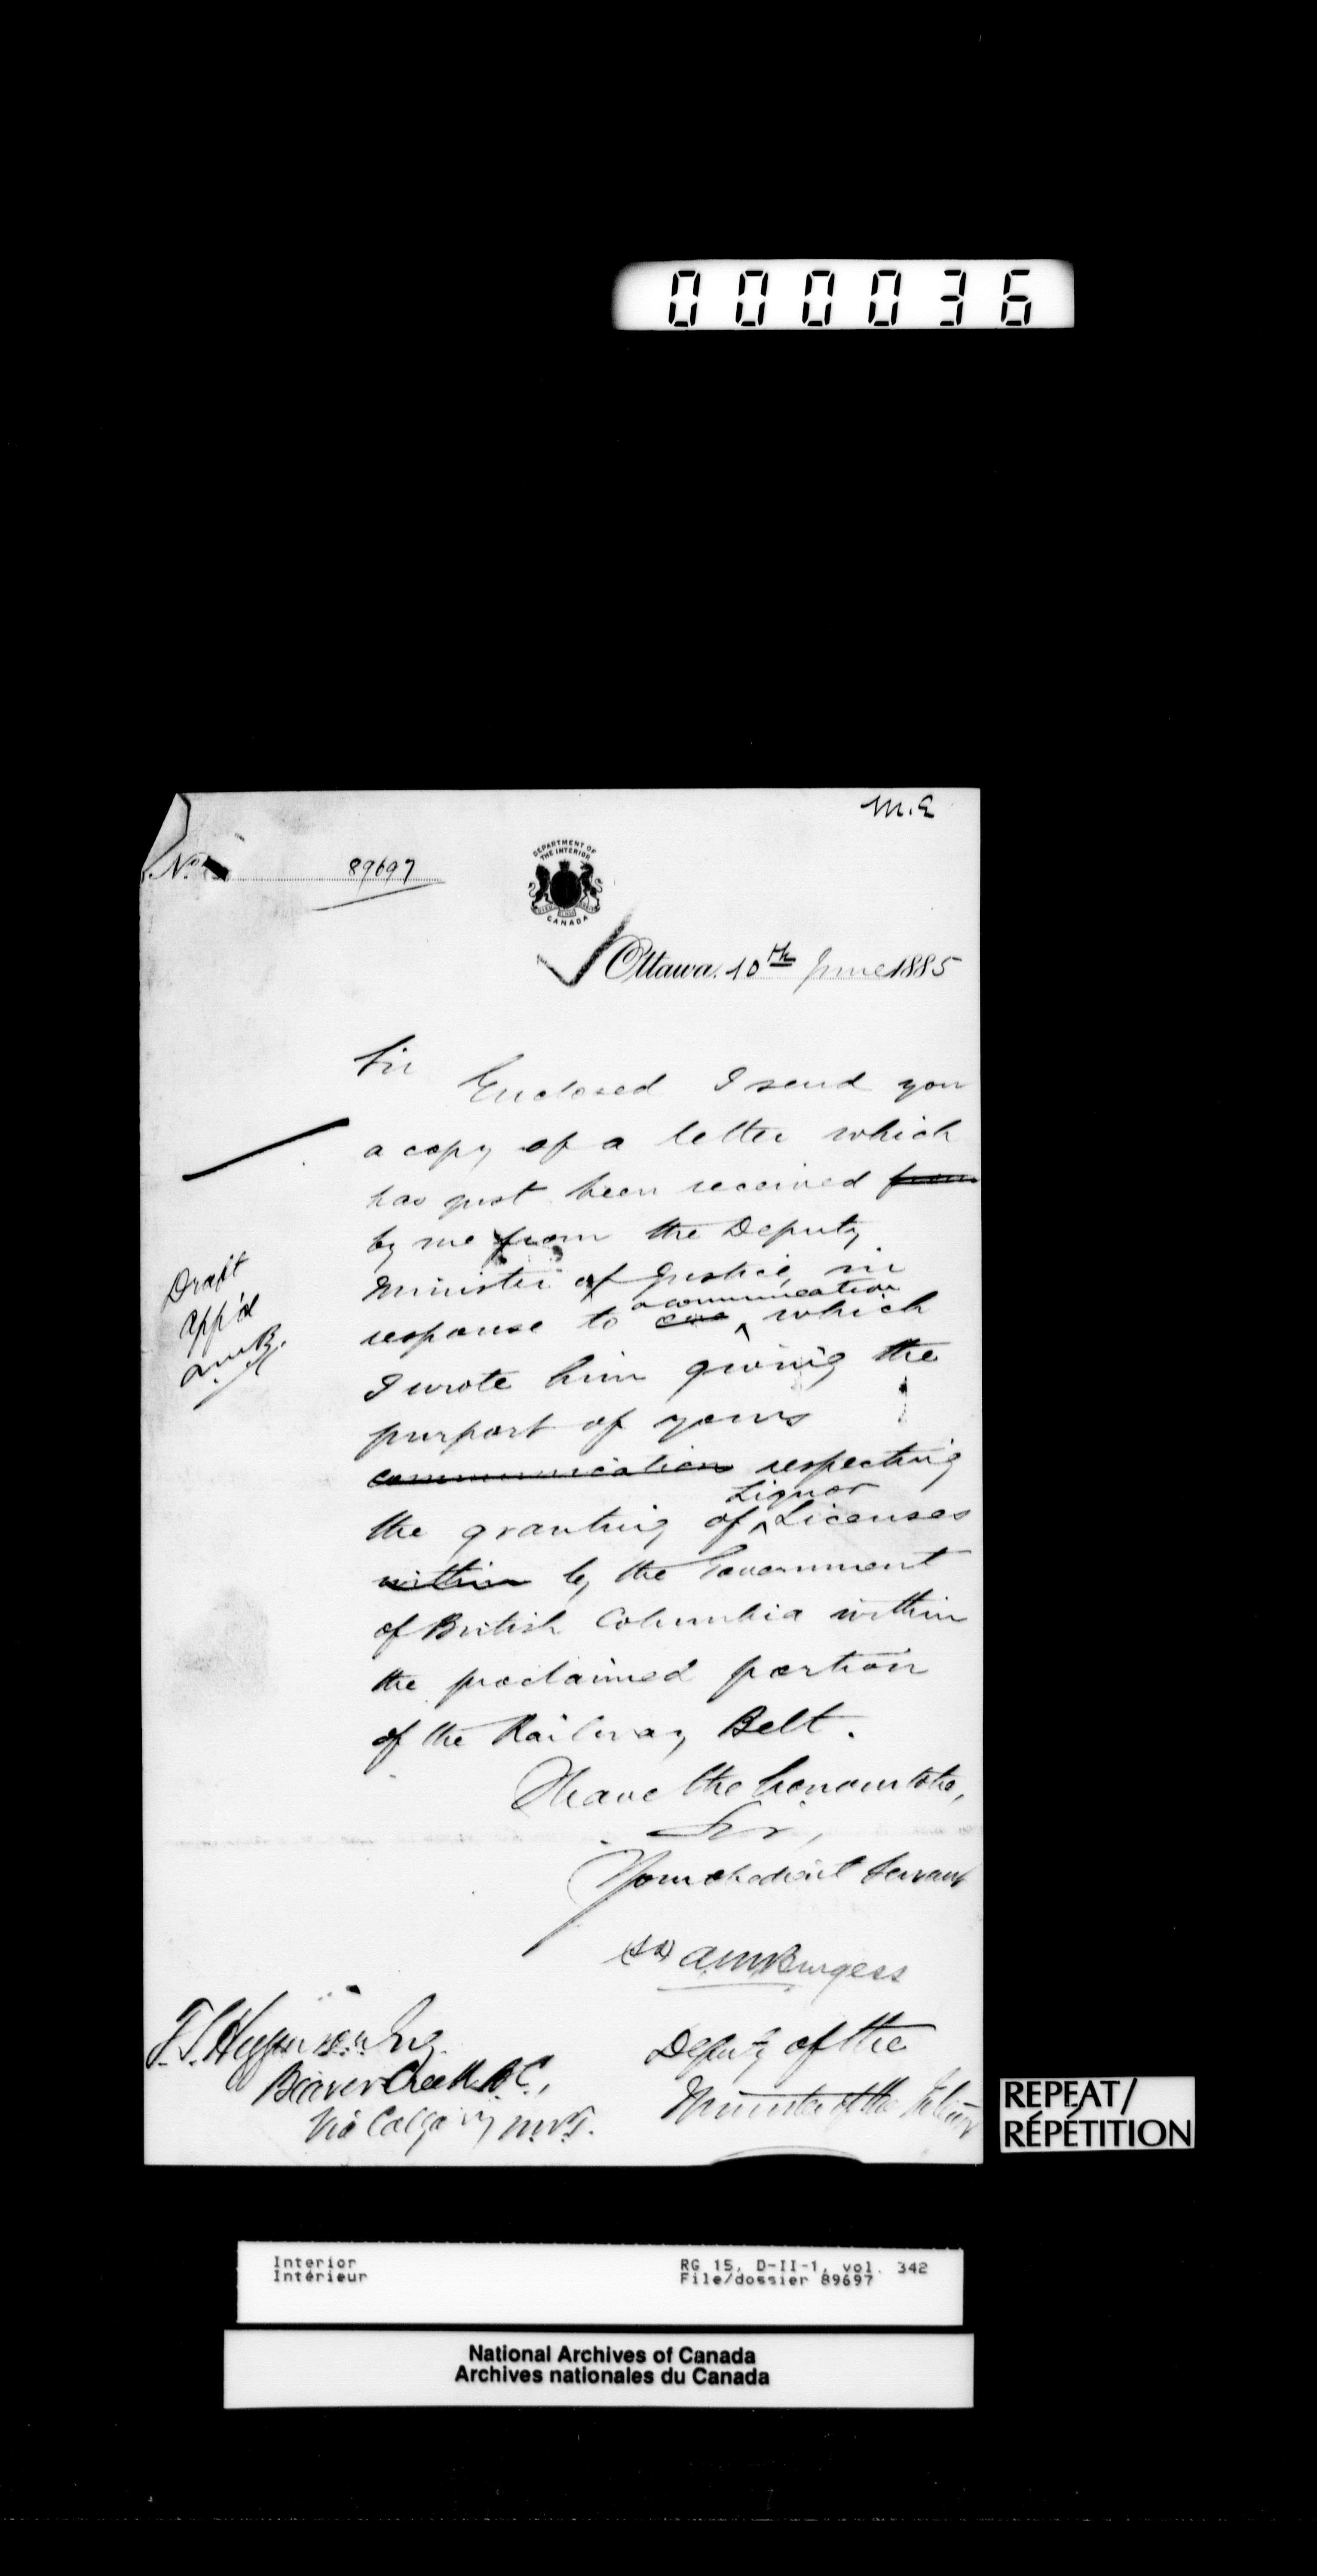 000036
M.E
No. 89697
DEPARTMENT OF
THE INTERIOR
CANADA
Ottawa. 10th June 1885
Sir
Enclosed I send you
a copy of a letter which
has just been received from
by me from the Deputy
Minister of Justice, in
a communication
response to one which
I wrote him giving the
purport of yours
communication respecting
Liquor
the granting of Licenses
within by the Government
of British Columbia within
the proclaimed portion
of the Railway Belt.
I have the honour to be,
Sir,
Your obedient Servant
(Sd) A M Burgess
Deputy of the
Minister of the Interior
Draft
app'd
AMB.
F. S.
Beaver Creek B.C.,
Via Calgary N.W.T.
REPEAT/
RÉPÉTITION
Interior
Intérieur
RG 15, D-II-1, vol. 342
File/dossier 89697
National Archives of Canada
Archives nationales du Canada